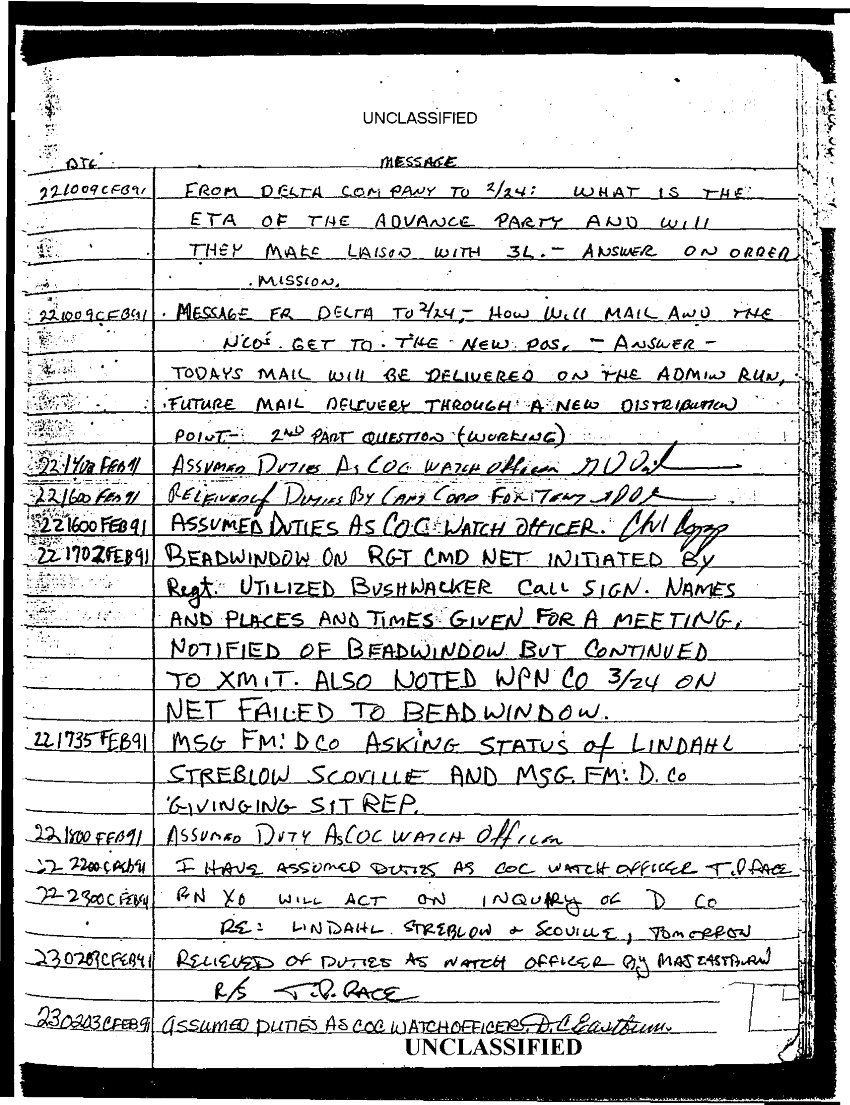 UNCLASSIFIED
DTG MESSAGE
221009CFEB91 FROM DELTA COMPANY TO 2/24: WHAT IS THE
ETA OF THE ADVANCE PARTY AND WILL
THEY MAKE LIAISON WITH 3L. - ANSWER ON ORDER
MISSION.
221009CFEB91 MESSAGE FR DELTA TO 2/24 - HOW WILL MAIL AND THE
NCOs GET TO THE NEW POS. - ANSWER -
TODAYS MAIL WILL BE DELIVERED ON THE ADMIN RUN,
FUTURE MAIL DELIVERY THROUGH A NEW DISTRIBUTION
POINT - 2ND PART QUESTION (WORKING)
FEB91 ASSUMED DUTIES AS COC WATCH OFFICER
221600 FEB 91 RELIEVED of DUTIES BY CAPT
221600 FEB 91 ASSUMED DUTIES AS COC WATCH OFFICER.
221702FEB91 BEADWINDOW ON RGT CMD NET INITIATED BY
Regt. UTILIZED BUSHWACKER CALL SIGN. NAMES
AND PLACES AND TIMES GIVEN FOR A MEETING,
NOTIFIED OF BEADWINDOW BUT CONTINUED
TO XMIT. ALSO NOTED WPN CO 3/24 ON
NET FAILED TO BEADWINDOW.
221735FEB91 MSG FM: D CO ASKING STATUS of LINDAHL
STREBLOW SCOVILLE AND MSG. FM: D. CO
GIVINGING SITREP.
221800 FEB91 ASSUMED DUTY AS COC WATCH Officer
22 2200CFEB91 I HAVE ASSUMED DUTIES AS COC WATCH OFFICER T.P. RACE
22-2300CFEB91 BN XO WILL ACT ON INQUARY OF D CO
RE: LINDAHL STREBLOW & SCOVILLE, TOMORROW
230203CFEB91 RELIEVED OF DUTIES AS WATCH OFFICER BY MAJ EASTBURN
R/S T.P. RACE
230203CFEB91 ASSUMED DUTIES AS COC WATCH OFFICER D.C. Eastburn
UNCLASSIFIED